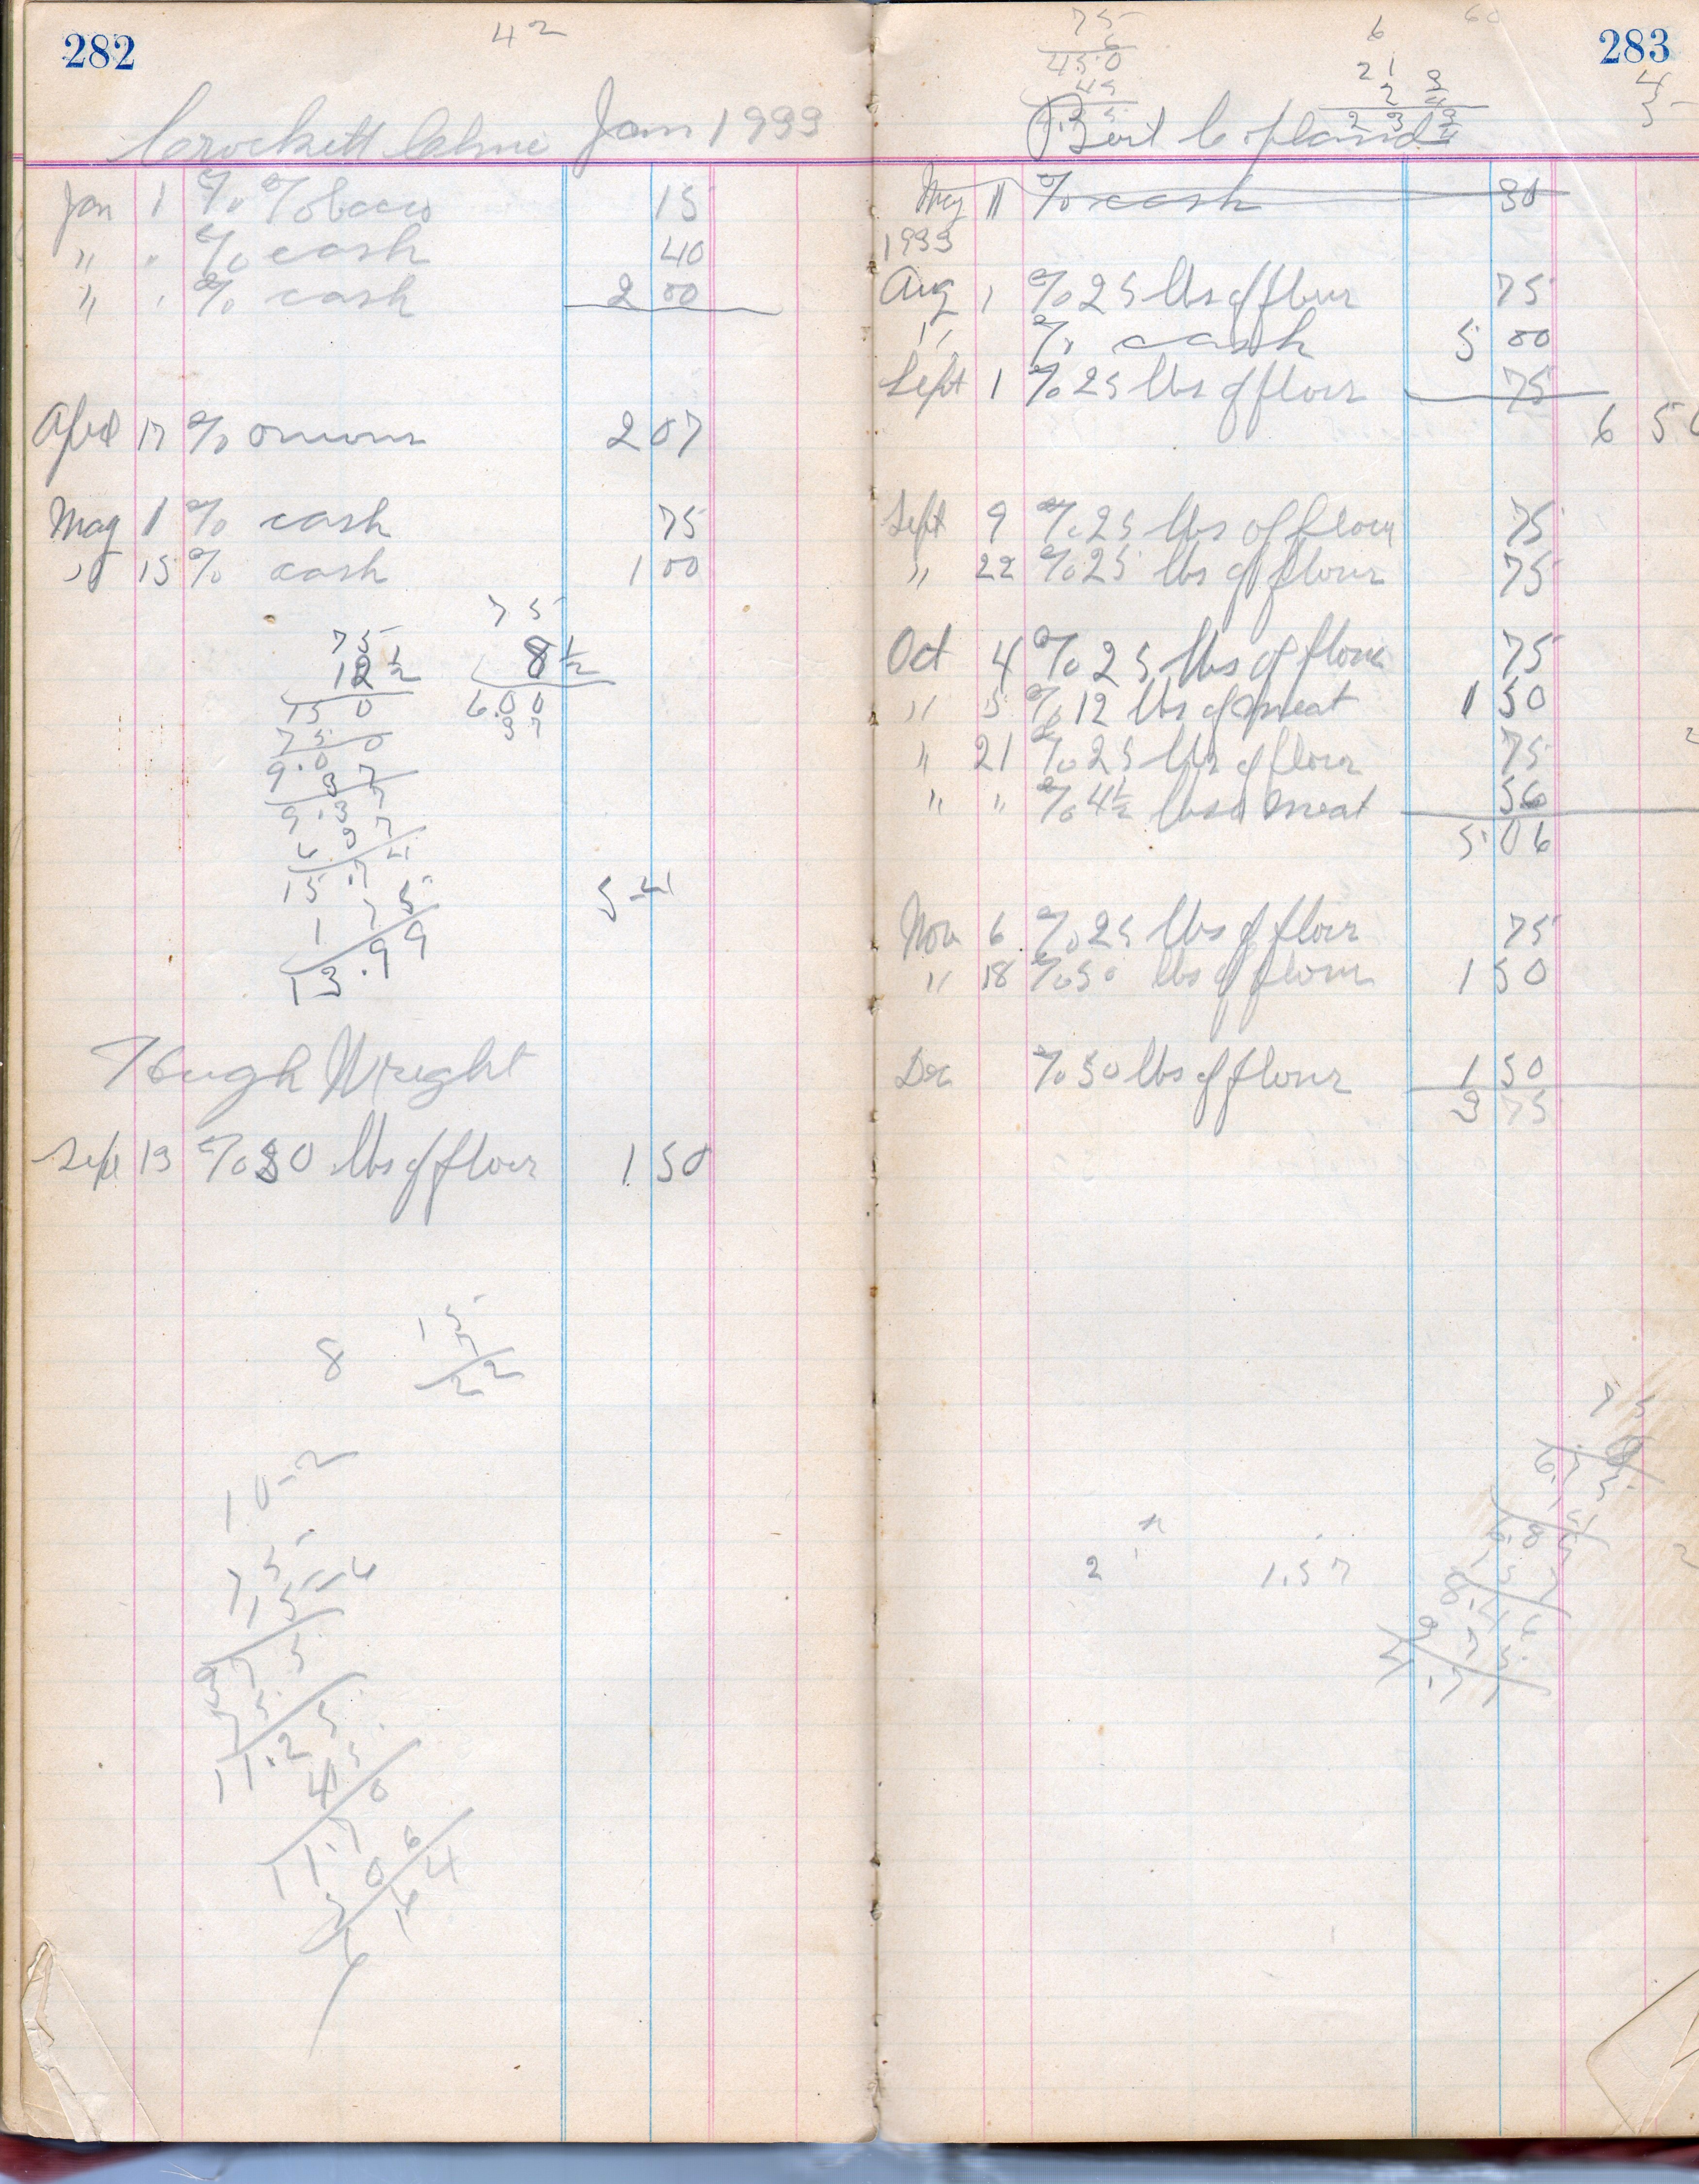 282
42
Crockett Jan 1933
Jan 1 % Tobacco 15
" " % cash 40
" " % cash 2 00
April 17 % onions 2 07
May 1 % cash 75
" 15 % cash 1 00
75
12 1/2
150
75 0
9.0
37
9.37
6 37
15.74
1 75
13.99
75
8 1/2
6.00
37
5 41
Hugh Wright
Sept 13 % 50 lbs of flour 1 50
8
15
7
22
10-2
75
15
375
75
11.25
45
11.70
283
75
6
45.0
45
6
21
2 3/4
23 3/4
60
Bert Copland
May 11 % cash 30
1933
Aug 1 % 25 lbs of flour 75
" % cash 5 00
Sept 1 % 25 lbs of flour 75
6 50
Sept 9 % 25 lbs of flour 75
" 22 % 25 lbs of flour 75
Oct 4 % 25 lbs of flour 75
" 5 % 12 lbs of meat 1 50
" 21 % 25 lbs of flour 75
" " % 4 1/2 lbs meat 56
5 06
Nov 6 % 25 lbs of flour 75
" 18 % 50 lbs of flour 1 50
Dec % 50 lbs of flour 1 50
3 75
75
6.75
2
1.57